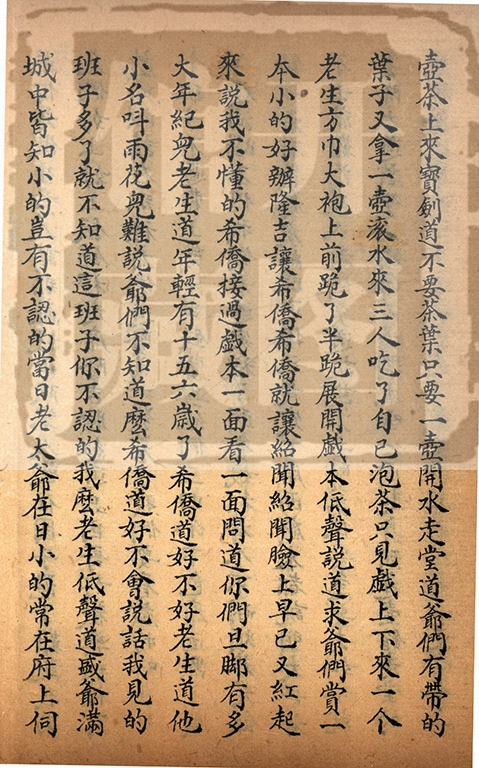 壺茶上來寶劍道不要茶葉只要一壺開水走堂道爺們有帶的
葉子又拿一壺滚水來三人吃了自己泡茶只見戲上下來一个
老生方巾大袍上前跪了半跪展開戲本低聲說道求爺們賞一
本小的好辦隆吉讓希僑希僑就讓紹聞紹聞臉上早已又紅起
來說我不懂的希僑接過戲本一面看一面問道你們旦脚有多
大年紀兒老生道年輕有十五六歲了希僑道好不好老生道他
小名呌雨花兒難說爺們不知道麽希僑道好不會說話我見的
班子多了就不知道這班子你不認的我麽老生低聲道盛爺滿
城中皆知小的豈有不認的當日老太爺在日小的常在府上伺